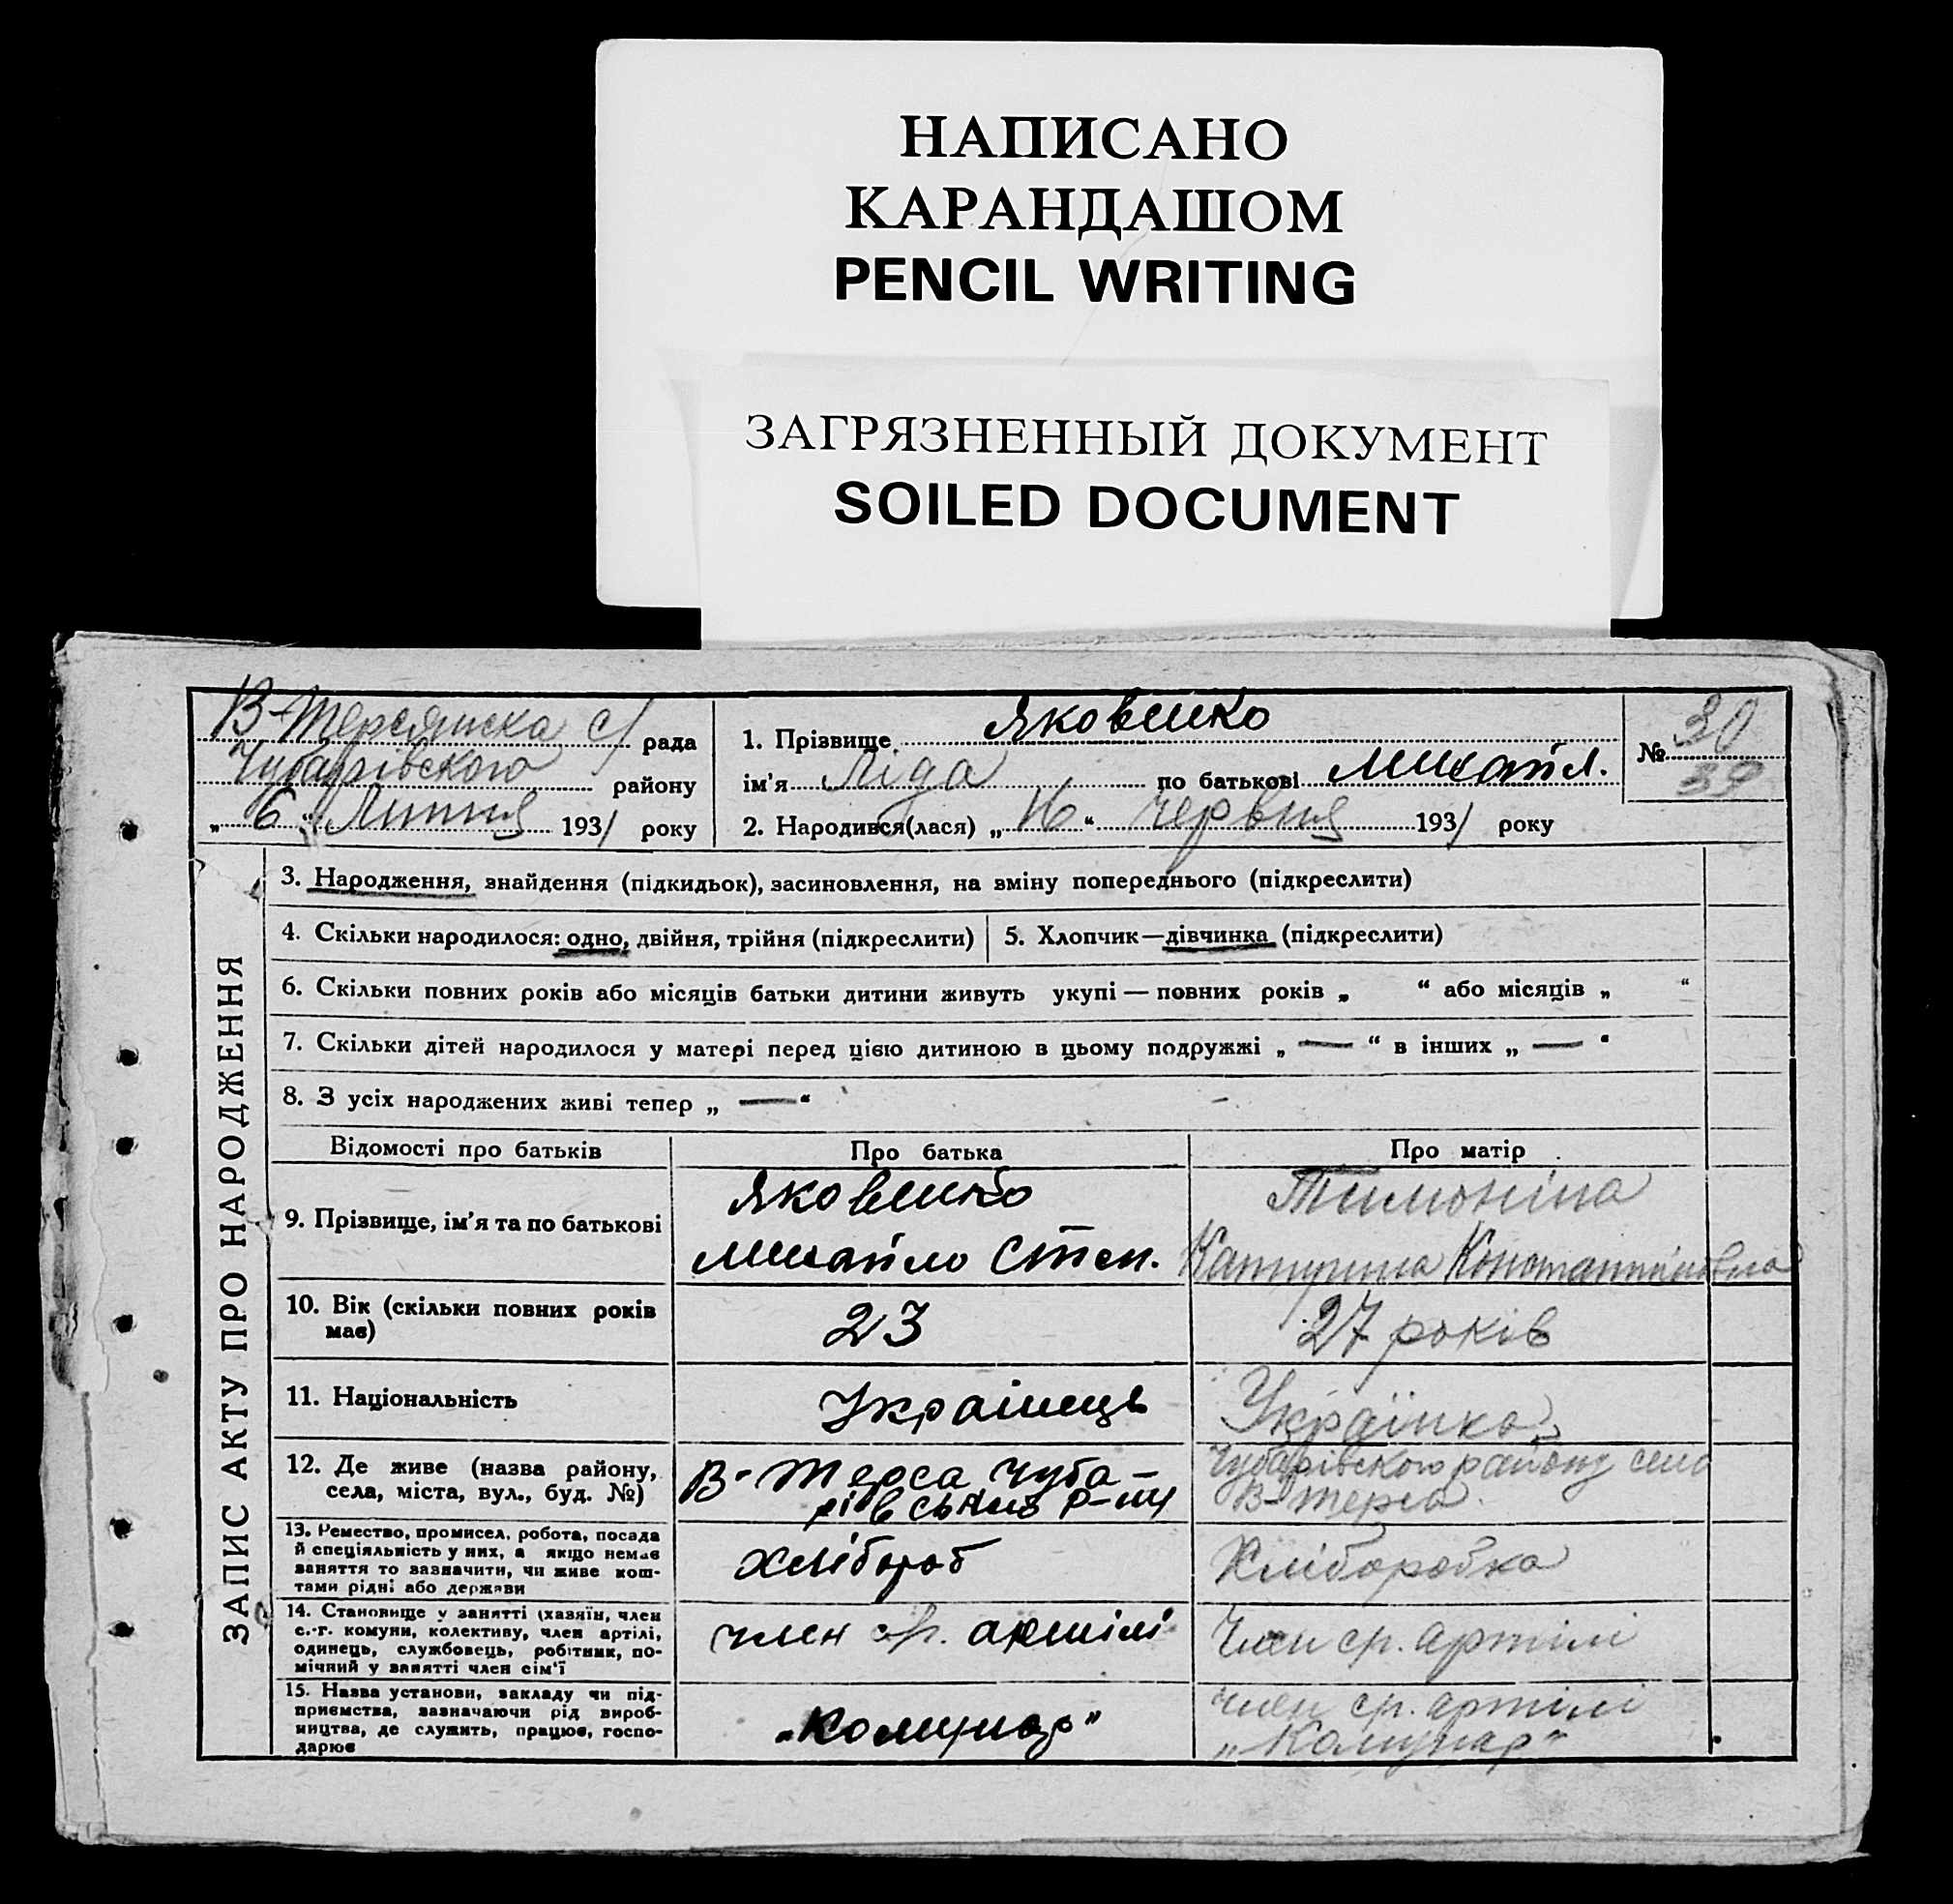 НАПИСАНО
КАРАНДАШОМ
PENCIL WRITING
ЗАГРЯЗНЕННЫЙ ДОКУМЕНТ
SOILED DOCUMENT
В-Терсянська с/ рада
Чубарівського району
„ 6 “ Липня 1931 року
1. Прізвище Яковенко
ім'я Ліда по батькові Михайл.
2. Народився(лася) „ 16 “ червня 1931 року
№ 30
39
ЗАПИС АКТУ ПРО НАРОДЖЕННЯ
3. Народження, знайдення (підкидьок), засиновлення, на вміну попереднього (підкреслити)
4. Скільки народилося: одно, двійня, трійня (підкреслити)
5. Хлопчик—дівчинка (підкреслити)
6. Скільки повних років або місяців батьки дитини живуть укупі — повних років „ “ або місяців „ “
7. Скільки дітей народилося у матері перед цією дитиною в цьому подружжі „ — “ в інших „ — “
8. З усіх народжених живі тепер „ — “
Відомості про батьків
Про батька
Про матір
9. Прізвище, ім'я та по батькові
Яковенко
Михайло Степ.
Тимоніна
Катерина Константиновна
10. Вік (скільки повних років
має)
23
27 років
11. Національність
Українець
Українка
12. Де живе (назва району,
села, міста, вул., буд. №)
В-Терса Чуба-
рівського р-ну
Чубарівского району село
В-Терса
13. Ремество, промисел, робота, посада
й спеціяльність у них, а якщо немає
заняття то зазначити, чи живе кош-
тами рідні або держави
хлібороб
Хлiборобка
14. Становище у занятті (хазяїн, член
с.-г. комуни, колективу, член артілі,
одинець, службовець, робітник, по-
мічний у занятті член сім'ї
член ср. артілі
Член ср. артілі
15. Назва установи, закладу чи під-
приємства, зазначаючи рід вироб-
ництва, де служить, працює, госпо-
дарює
„Комунар"
член ср. артілі
„Комунар"